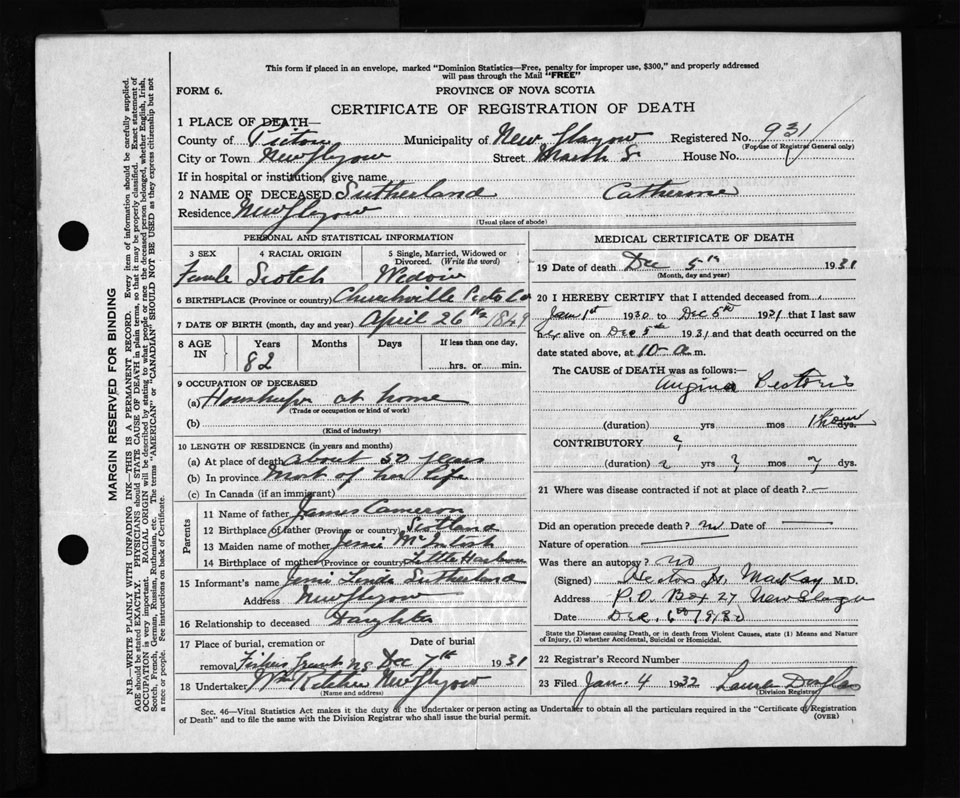 This form if placed in an envelope, marked "Dominion Statistics—Free, penalty for improper use, $300," and properly addressed
will pass through the Mail "FREE"
FORM 6.
PROVINCE OF NOVA SCOTIA
CERTIFICATE OF REGISTRATION OF DEATH
1 PLACE OF DEATH—
County of Pictou Municipality of New Glasgow Registered No. 931
(For use of Registrar General only)
City or Town New Glasgow Street Marsh St House No.
If in hospital or institution, give name
2 NAME OF DECEASED Sutherland Catherine
Residence New Glasgow
(Usual place of abode)
PERSONAL AND STATISTICAL INFORMATION
3 SEX 4 RACIAL ORIGIN 5 Single, Married, Widowed or Divorced. (Write the word)
Female Scotch Widow
6 BIRTHPLACE (Province or country) Churchville Pictou Co
7 DATE OF BIRTH (month, day and year) April 26th 1849
8 AGE IN Years Months Days If less than one day,
82 hrs. or min.
9 OCCUPATION OF DECEASED
(a) Housekeeper at home
(Trade or occupation or kind of work)
(b)
(Kind of industry)
10 LENGTH OF RESIDENCE (in years and months)
(a) At place of death about 50 years
(b) In province Most of her life
(c) In Canada (if an immigrant)
Parents
11 Name of father James Cameron
12 Birthplace of father (Province or country) Scotland
13 Maiden name of mother Jessie McIntosh
14 Birthplace of mother (Province or country) Little Harbour
15 Informant's name Jessie Linda Sutherland
Address New Glasgow
16 Relationship to deceased Daughter
17 Place of burial, cremation or Date of burial
removal Fishers Grant NS Dec 7th 1931
18 Undertaker New Glasgow
(Name and address)
MEDICAL CERTIFICATE OF DEATH
19 Date of death Dec 5th 1931
(Month, day and year)
20 I HEREBY CERTIFY that I attended deceased from
Jan 1st 1930 to Dec 5th 1931 that I last saw
her alive on Dec 5th 1931 and that death occurred on
date stated above, at 10 a m.
The CAUSE of DEATH was as follows:—
Angina Pectoris
(duration) yrs mos 1 hour dys.
CONTRIBUTORY ?
(duration) ? yrs ? mos ? dys.
21 Where was disease contracted if not at place of death? —
Did an operation precede death? no Date of —
Nature of operation —
Was there an autopsy? no
(Signed) Hector H. MacKay M.D.
Address P.O. Box 27 New Glasgow
Date Dec. 6th
State the Disease causing Death, or in death from Violent Causes, state (1) Means and Nature
of Injury, (2) whether Accidental, Suicidal or Homicidal.
22 Registrar's Record Number
23 Filed Jan. 4 1932 Douglas
(Division Registrar)
Sec. 46—Vital Statistics Act makes it the duty of the Undertaker or person acting as Undertaker to obtain all the particulars required in the "Certificate of Registration
of Death" and to file the same with the Division Registrar who shall issue the burial permit.
(OVER)
MARGIN RESERVED FOR BINDING
N.B.—WRITE PLAINLY WITH UNFADING INK—THIS IS A PERMANENT RECORD. Every item of information should be carefully supplied.
AGE should be stated EXACTLY. PHYSICIANS should STATE CAUSE OF DEATH in plain terms, so that it may be properly classified. Exact statement of
OCCUPATION is very important. RACIAL ORIGIN will be described by stating to what people or race the deceased person belonged, whether English, Irish,
Scotch, French, German, Russian, Ruthenian, etc. The terms "AMERICAN" or "CANADIAN" SHOULD NOT BE USED as they express citizenship but not
a race or people. See instructions on back of Certificate.